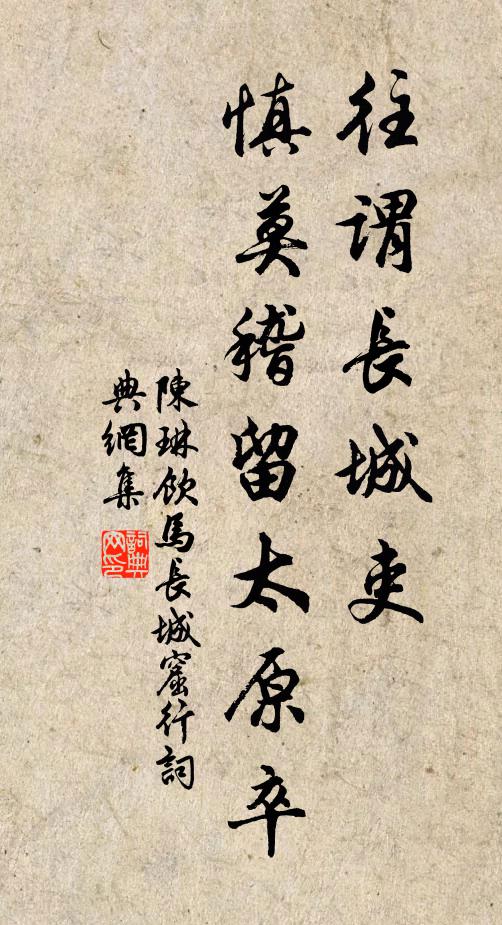 往謂長城吏
慎莫稽留太原卒
陳琳飲馬長城窟行詞
典網集
詞典
网印